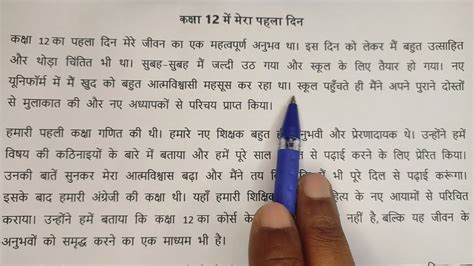 कक्षा 12 में मेरा पहला दिन
कक्षा 12 का पहला दिन मेरे जीवन का एक महत्वपूर्ण अनुभव था। इस दिन को लेकर मैं बहुत उत्साहित
और थोड़ा चिंतित भी था। सुबह-सुबह मैं जल्दी उठ गया और स्कूल के लिए तैयार हो गया। नए
यूनिफॉर्म में मैं खुद को बहुत आत्मविश्वासी महसूस कर रहा था। स्कूल पहुँचते ही मैंने अपने पुराने दोस्तों
से मुलाकात की और नए अध्यापकों से परिचय प्राप्त किया।
हमारी पहली कक्षा गणित की थी। हमारे नए शिक्षक बहुत नुभवी और प्रेरणादायक थे। उन्होंने हमें
विषय की कठिनाइयों के बारे में बताया और हमें पूरे साल त से पढ़ाई करने के लिए प्रेरित किया।
उनकी बातें सुनकर मेरा आत्मविश्वास बढ़ा और मैंने तय कि मैं भी पूरे दिल से पढ़ाई करूंगा।
इसके बाद हमारी अंग्रेजी की कक्षा थी। यहाँ हमारी शिक्षिक हित्य के नए आयामों से परिचित
कराया। उन्होंने हमें बताया कि कक्षा 12 का कोर्स के नहीं है, बल्कि यह जीवन के
अनुभवों को समृद्ध करने का एक माध्यम भी है।